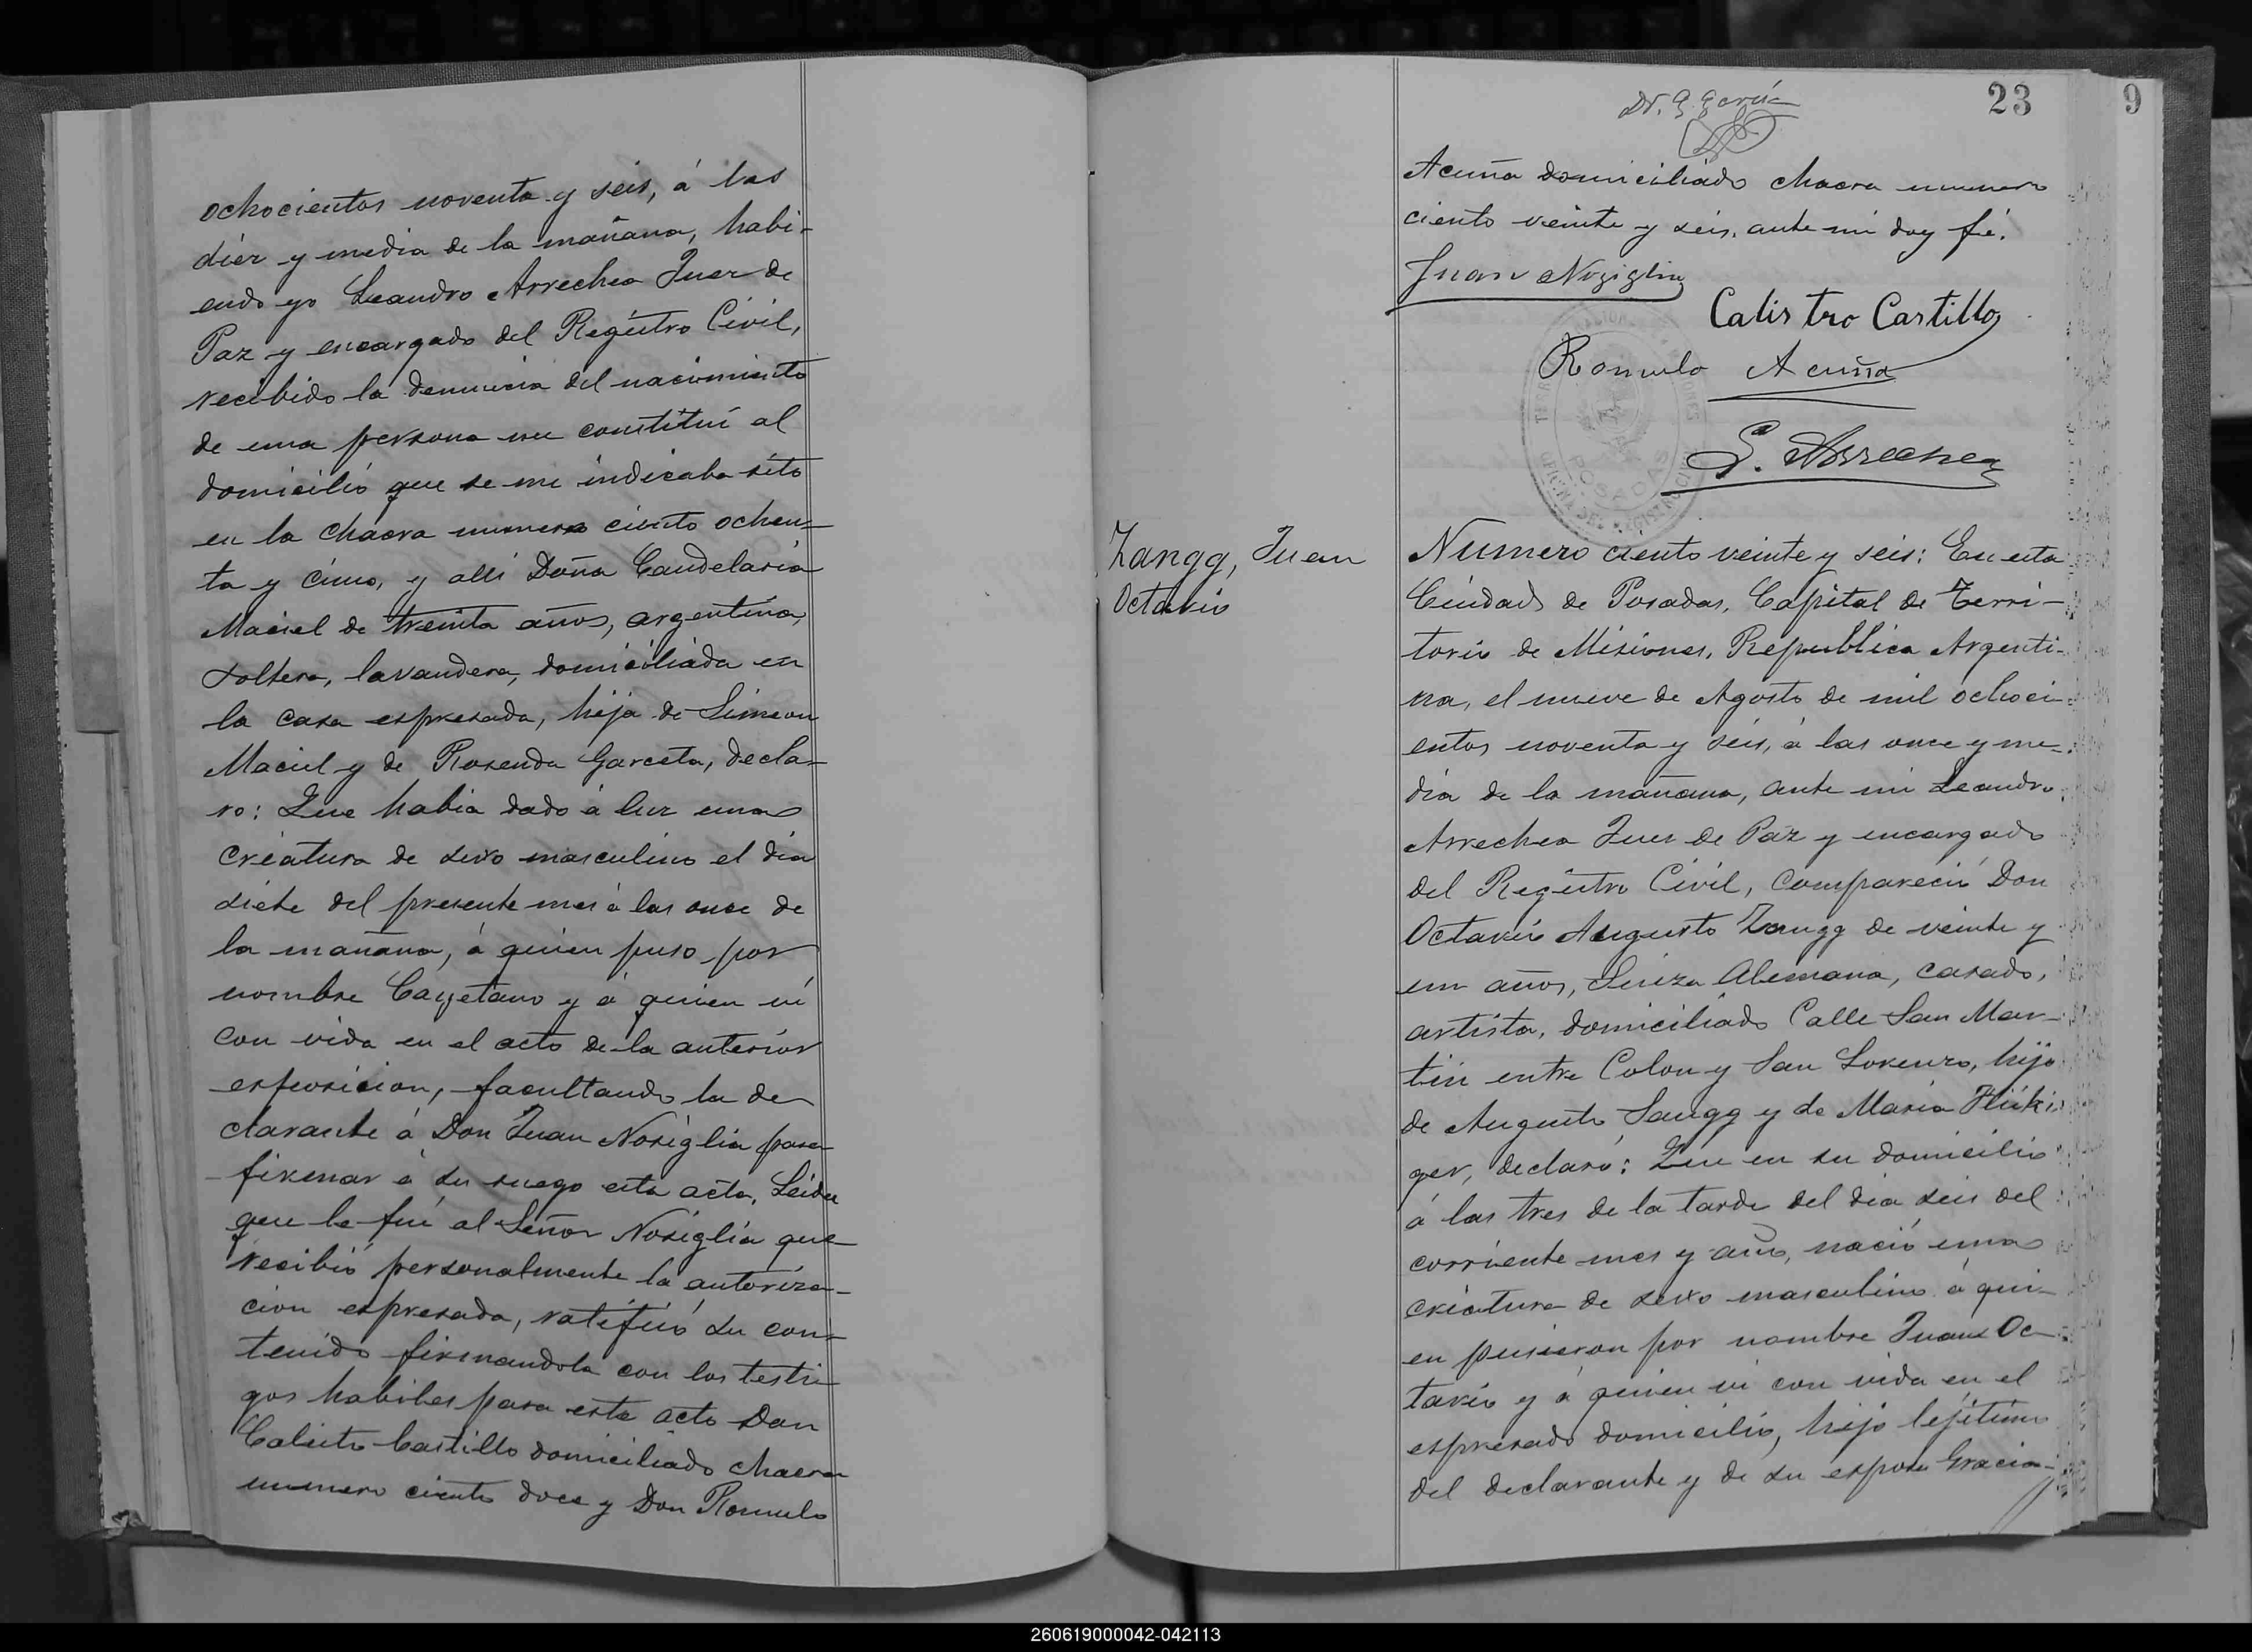 ochocientos noventa y seis, á las
diez y media de la mañana, habi-
endo yo Leandro Arrechea Juez de
Paz y encargado del Registro Civil,
recibido la denuncia del nacimiento
de una persona me constituí al
domicilio que se me indicaba sito
en la chacra numero ciento ochen-
ta y cinco, y allí Doña Candelaria
Maciel de treinta años, argentina,
soltera, lavandera, domiciliada en
la casa espresada, hija de Simeon
Maciel y de Rosenda Garceta, decla-
ro: Que habia dado á luz una
criatura de sexo masculino el dia
siete del presente mes á las once de
la mañana, á quien puso por
nombre Cayetano y á quien vi
con vida en el acto de la anterior
esposicion, facultando la de
clarante á Don Juan Nosiglia para
firmar á su ruego esta acta. Leida
que le fué al Señor Nosiglia que
recibió personalmente la autoriza-
cion espresada, ratificó su con-
tenido firmandola con los testi-
gos habiles para este acto Don
Calisto Castillo domiciliado chacra
numero ciento doce y Don Romulo
23
9
Dr. G. García
Acuña domiciliado chacra numero
ciento veinte y seis, ante mi doy fé.
Juan Nosiglia
Calistro Castillo
Romulo Acuña
L. Arrechea
POSADAS
Zangg, Juan
Octavio
Numero ciento veinte y seis: En esta
Ciudad de Posadas, Capital de Terri-
torio de Misiones, Republica Argenti-
na, el nueve de Agosto de mil ochoci-
entos noventa y seis, á las once y me-
dia de la mañana, ante mi Leandro
Arrechea Juez de Paz y encargado
del Registro Civil, compareció Don
Octavio Augusto Zangg de veinte y
un años, Suiza Alemana, casado,
artista, domiciliado Calle San Mar-
tin entre Colon y San Lorenzo, hijo
de Augusto Sangg y de Maria Flüki
ger, declaró: Que en su domicilio
á las tres de la tarde del dia seis del
corriente mes y año, nació una
criatura de sexo masculino á qui-
en pusieron por nombre Juan Oc-
tavio y á quien vi con vida en el
espresado domicilio, hijo lejítimo
del declarante y de su esposa Gracia-
260619000042-042113